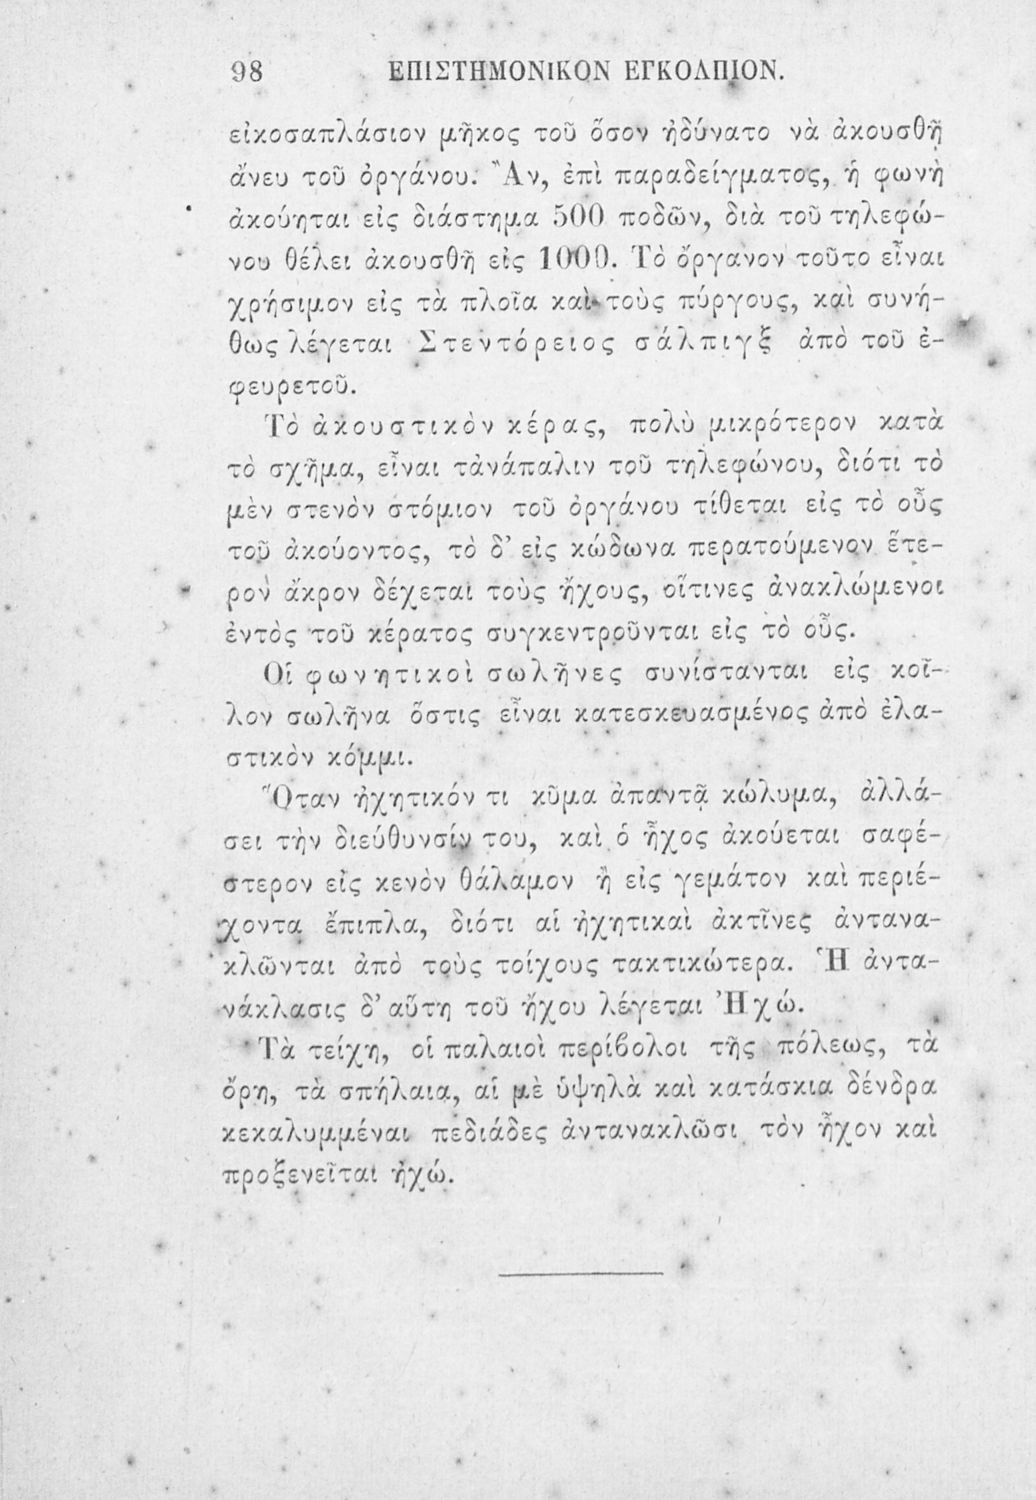 98 ΕΠΙΣΤΗΜΟΝΙΚΟΝ ΕΓΚΟΛΠΙΟΝ.
εἰκοσαπλάσιον μῆκος τοῦ ὅσον ἠδύνατο νὰ ἀκουσθῇ
ἄνευ τοῦ ὀργάνου. Ἂν, ἐπὶ παραδείγματος, ἡ φωνὴ
ἀκούηται εἰς διάστημα 500 ποδῶν, διὰ τοῦ τηλεφώ-
νου θέλει ἀκουσθῆ εἰς 1000. Τὸ ὄργανον τοῦτο εἶναι
χρήσιμον εἰς τὰ πλοῖα καὶ τοὺς πύργους, καὶ συνή-
θως λέγεται Στεντόρειος σάλπιγξ ἀπὸ τοῦ ἐ-
φευρετοῦ.
Τὸ ἀκουστικὸν κέρας, πολὺ μικρότερον κατὰ
τὸ σχῆμα, εἶναι τἀνάπαλιν τοῦ τηλεφώνου, διότι τὸ
μὲν στενὸν στόμιον τοῦ ὀργάνου τίθεται εἰς τὸ οὖς
τοῦ ἀκούοντος, τὸ δ’ εἰς κώδωνα περατούμενον ἕτε-
ρον ἄκρον δέχεται τοὺς ἤχους, οἵτινες ἀνακλώμενοι
ἐντὸς τοῦ κέρατος συγκεντροῦνται εἰς τὸ οὖς.
Οἱ φωνητικοὶ σωλῆνες συνίστανται εἰς κοῖ-
λον σωλῆνα ὅστις εἶναι κατεσκευασμένος ἀπὸ ἐλα-
στικὸν κόμμι.
Ὅταν ἠχητικόν τι κῦμα ἀπαντᾷ κώλυμα, ἀλλά-
σει τὴν διεύθυνσίν του, καὶ ὁ ἦχος ἀκούεται σαφέ-
στερον εἰς κενὸν θάλαμον ἢ εἰς γεμάτον καὶ περιέ-
χοντα ἔπιπλα, διότι αἱ ἠχητικαὶ ἀκτῖνες ἀντανα-
κλῶνται ἀπὸ τοὺς τοίχους τακτικώτερα. Ἡ ἀντα-
νάκλασις δ’ αὕτη τοῦ ἤχου λέγεται Ἠχώ.
Τὰ τείχη, οἱ παλαιοὶ περίβολοι τῆς πόλεως, τὰ
ὄρη, τὰ σπήλαια, αἱ μὲ ὑψηλὰ καὶ κατάσκια δένδρα
κεκαλυμμέναι πεδιάδες ἀντανακλῶσι τὸν ἦχον καὶ
προξενεῖται ἠχώ.